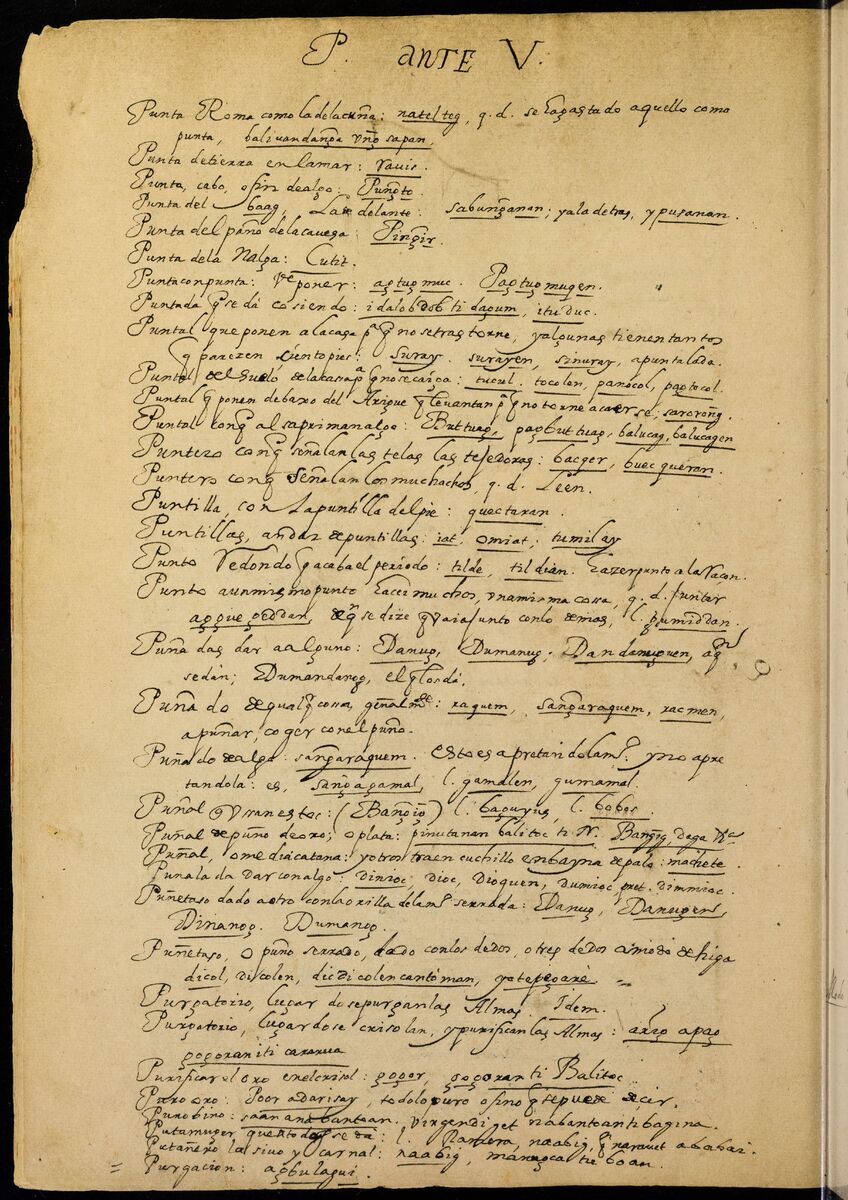 P. ante V.
Punta Roma como la de la cuña: natelteg, q. d. se ha gastado aquello como
punta, balivandanga uño sapan.
Punta de tierra en la mar: rauis.
Punta, cabo, o fin de algo: Pungto.
Punta del baag, La de delante: sabunganan; y a la detras, ypusanan.
Punta del paño de la caveça: Pingir.
Punta de la Nalga: Cutit.
Punta con punta: poner: agtugmuc. Pagtugmuqen.
Puntada q̃ se dá cosiendo: i dalob ti dagum, ituduc.
Puntal que ponen a la casa pª q̃ no se trastorne, y algunas tienen tantos
q̃ parezen çientopies: suray. surayen, sinuray, apuntalada.
Puntal del suelo de la casa pª q̃ no se caiga: tucul. tocolen, panocol, pagtocol.
Puntal q̃ ponen debaxo del Arigue q̃ levantan pª q̃ no torne a caerse, sarorong.
Puntal conq̃ alsapriman algo: Buttuag, pagbuttuag, balucag, balucagen
Puntero conq̃ señalan las telas las tejedoras: bacger, buec queran.
Puntero conq̃ señalan los muchachos, q. d. Leen.
Puntilla, con la puntilla del pie: quectaran.
Puntillas, andar de puntillas: iat. omiat, tumilay
Punto Redondo q̃ acaba el periodo: tilde, tildian. hazer punto a la raçon.
Punto a un mismo punto hacer muchos, una misma cossa, q. d. juntar
agque geddan, de q̃ se dize q̃ vaia junto con lo demas, l. gumiddan.
Puñadas dar a alguno: Danug, Dumanug, Dandanuguen, aq̃
se dán; Dumandanug, el q̃ los dá,
Puñado de qualq̃ cossa, genalmte: raquem, sangaraquem, racmen,
apuñar, coger con el puño.
Puñado de algo: sangaraquem. esto es apretando la mº. y no apre
tandola: es, sangagamal, l. gamalen, gumamal.
Puñal q̃ usan estos: (Bangig) l. baguyus, l. bobos.
Puñal de puño de oro; o plata: pinutanan balitoc ti N. Bangig, daga &c
Puñal, o media catana: y otros traen cuchillo en bayna de palo: machete.
Puñalada dar con algo: dinioc, dioc, dioquen, dumioc, pret. dimmioc.
Puñetaso dado a otro con la orilla de la mº serrada: Danug, Danugen,
Dinanog. Dumanog.
Puñetaso, o puño serrado, dado con los dedos, o tres dedos a modo de higa
dicol, dicolen, dicdicolencantoman,
Purgatorio, lugar do se purgan las Almas. Idem.
Purgatorio, lugar do se crisolan, y purifican las Almas: ango apag
gogoraniti cararua
Purificar el oro en el crisol: gogor, gogoran ti Balitoc.
Puro oro: Poor adarisay, todo lo puro o fino q̃ se puede deçir.
Puro bino: saan ana bantoan, virgen di pet nabantoanti bagina.
Puta muger que a todos se dá: l. Ramera, naabig,
Putañero lasivo y carnal: naabig,
Purgacion: agbulagui.